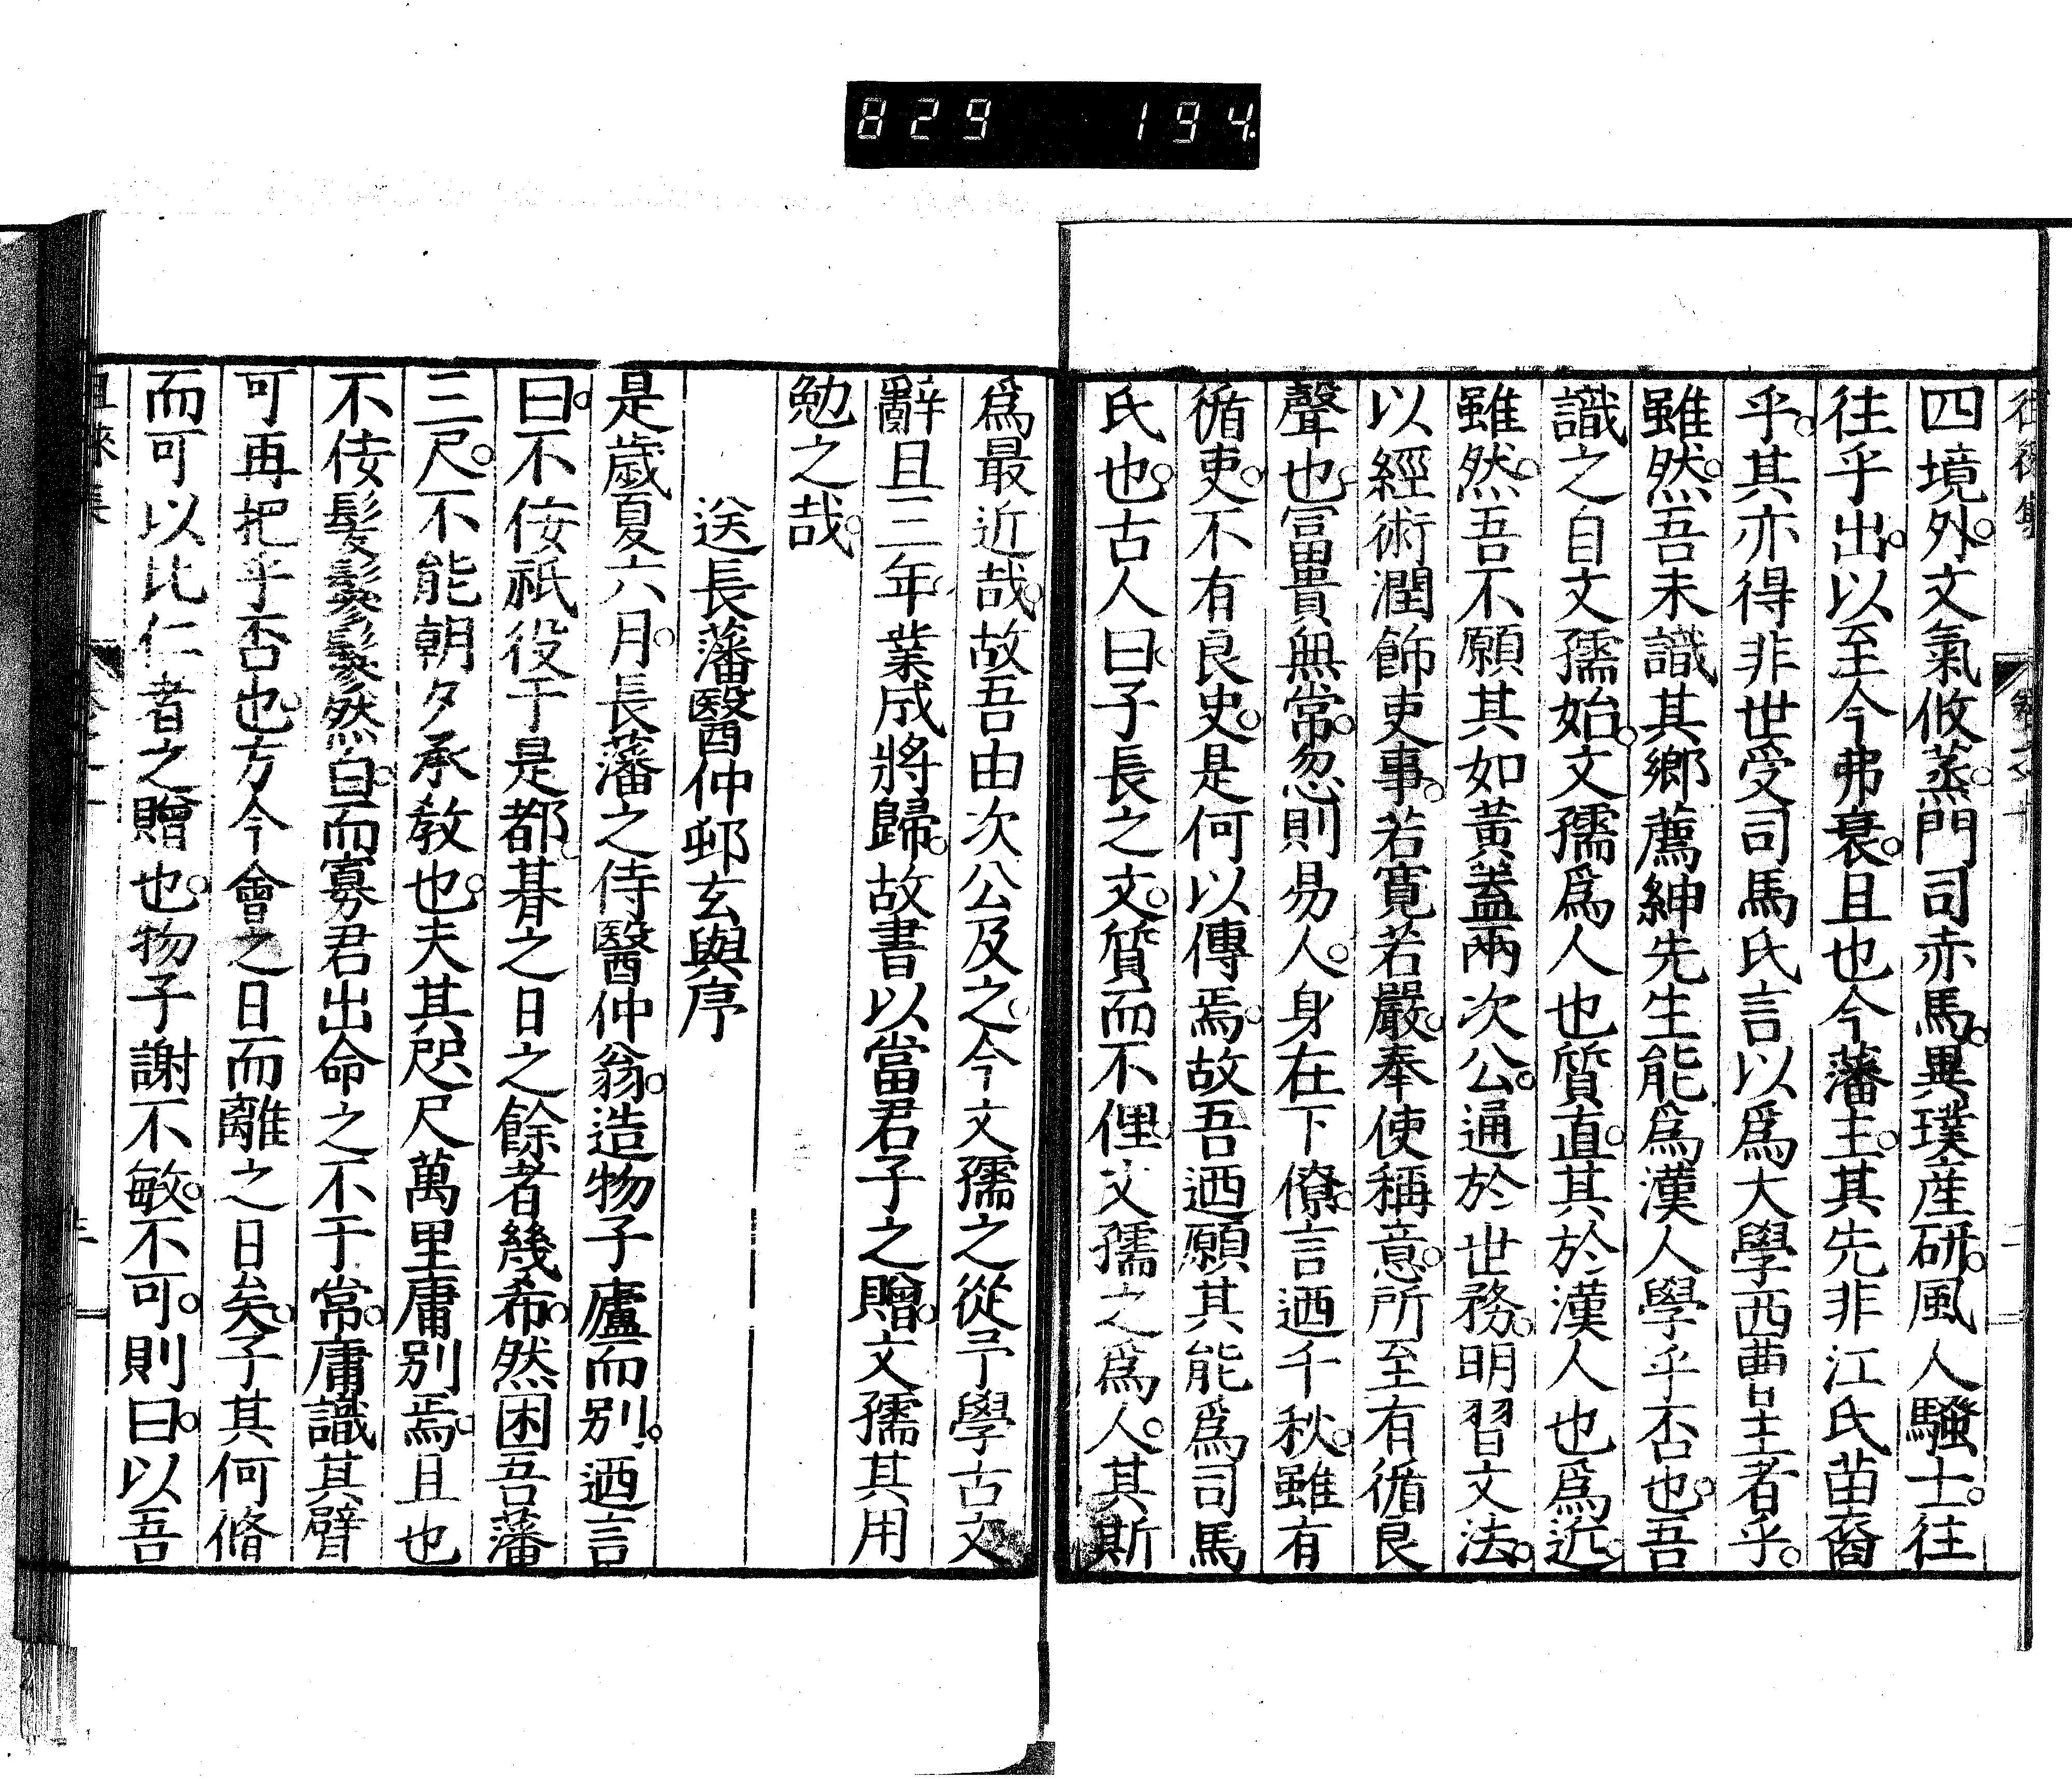 829 194.
四境外。文氣攸蒸。門司赤馬。異璞産研。風人騷士。往
往乎出。以至今弗衰。且也今藩主。其先非江氏苗裔
乎。其亦得非世受司馬氏言以爲大學西曹主者乎。
雖然。吾未識其鄉薦紳先生能爲漢人學乎否也。吾
識之自文孺始。文孺爲人也質直。其於漢人也爲近。
雖然。吾不願其如黃蓋兩次公。通於世務。明習文法。
以經術潤飾吏事。若寬若嚴。奉使稱意。所至有循良
聲也。富貴無常。忽則易人。身在下僚。言迺千秋。雖有
循吏。不有良史。是何以傳焉。故吾迺願其能爲司馬
氏也。古人曰。子長之文。質而不俚。文孺之爲人。其斯
爲最近哉。故吾由次公及之。今文孺之從予學古文
辭且三年。業成將歸。故書以當君子之贈。文孺其用
勉之哉。
送長藩醫仲邨玄與序
是歲夏六月。長藩之侍醫仲翁。造物子廬而別。迺言
曰。不佞祇役于是都。朞之日之餘者幾希。然困吾藩
三尺。不能朝夕承敎也。夫其咫尺萬里庸別焉。且也
不佞髮鬖鬖然白。而寡君出命之不于常。庸識其臂
可再把乎否也。方今會之日而離之日矣。子其何脩
而可以比仁者之贈也。物子謝不敏。不可。則曰。以吾